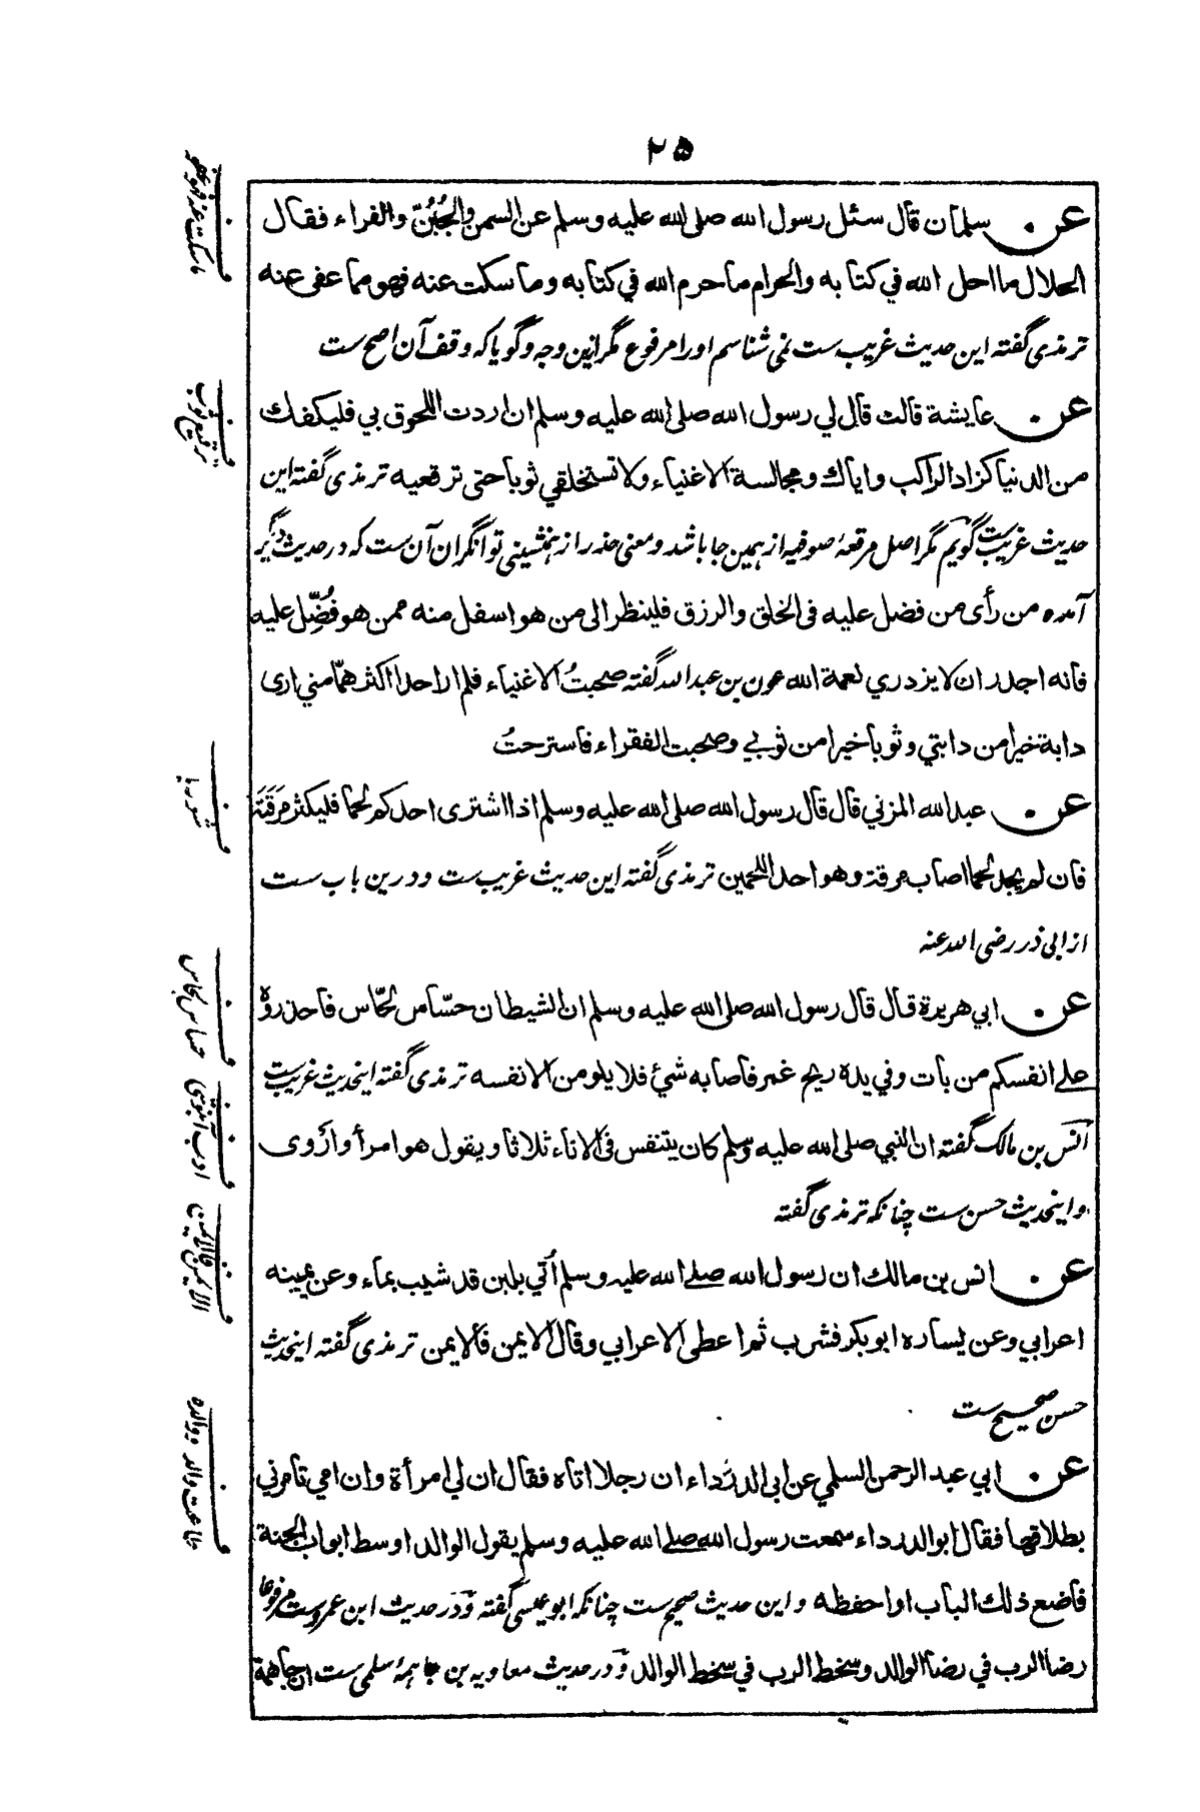 ۲۵
عن سلمان قال سئل رسول الله صلى الله عليه وسلم عن السمن والجُبُنّ والفراء فقال
الحلال ما احل الله في كتابه والحرام ما حرم الله في كتابه وما سكت عنه فهو مما عفى عنه
ترمذی گفته این حدیث غریب ست نمی شناسم اورا مرفوع مگر ازین وجه و گویا که وقف آن اصح ست
عن عايشة قالت قال لي رسول الله صلى الله عليه وسلم ان اردت اللحوق بي فليكفك
من الدنيا كزاد الراكب واياك ومجالسة الاغنياء ولا تستخلقي ثوبا حتى ترقعيه ترمذی گفته این
حدیث غریب ست گویم مگر اصل مرقعهٔ صوفیه از همین جا باشد و معنی حذر از همنشینی توانگران آن ست که در حدیث دیگر
آمده من رأى من فضل عليه في الخلق والرزق فلينظر الى من هو اسفل منه ممن هو فُضِّل عليه
فانه اجدر ان لا يزدري نعمة الله عون بن عبد الله گفته صحبتُ الاغنياء فلم ار احدا اكثر همّا مني ارى
دابة خيرا من دابتي وثوبا خيرا من ثوبي وصحبت الفقراء فاسترحتُ
عن عبد الله المزني قال قال رسول الله صلى الله عليه وسلم اذا اشترى احدكم لحما فليكثر مَرَقَتَه
فان لم يجد لحما اصاب مرقة وهو احد اللحمين ترمذی گفته این حدیث غریب ست و درین باب ست
از ابی ذر رضی الله عنه
عن ابي هريرة قال قال رسول الله صلى الله عليه وسلم ان الشيطان حسّاس لحّاس فاحذروهُ
على انفسكم من بات وفي يده ريح غمر فاصابه شيْ فلا يلومن الا نفسه ترمذی گفته اینحدیث غریب ست
انس بن مالک گفته ان النبي صلى الله عليه وسلم كان يتنفس في الاناء ثلاثا ويقول هو امرأ واروى
و اینحدیث حسن ست چنانکه ترمذی گفته
عن انس بن مالك ان رسول الله صلے الله عليه وسلم اُتي بلبن قد شيب بماء وعن يمينه
اعرابي وعن يساره ابو بكر فشرب ثم اعطى الاعرابي وقال الايمن فالايمن ترمذی گفته اینحدیث
حسن صحیح ست
عن ابي عبد الرحمن السلمي عن ابي الدرداء ان رجلا اتاه فقال ان لي امرأة وان امي تامرني
بطلاقها فقال ابو الدرداء سمعت رسول الله صلے الله عليه وسلم يقول الوالد اوسط ابواب الجنة
فاضع ذلك الباب او احفظه و این حدیث صحیح ست چنانکه ابو عیسی گفته و در حدیث ابن عمروست مرفوعا
رضا الرب في رضا الوالد وسخط الرب في سخط الوالد و در حدیث معاویه بن جاهمهٔ سلمی ست ان جاهمة
ف ماسكت عنه فهو عفو
ف ترقیع ثوب
ف شوربا
ف حساس لحاس
ف ادب آبنوشی
ف الايمن فالايمن
ف طاعت والد و والده